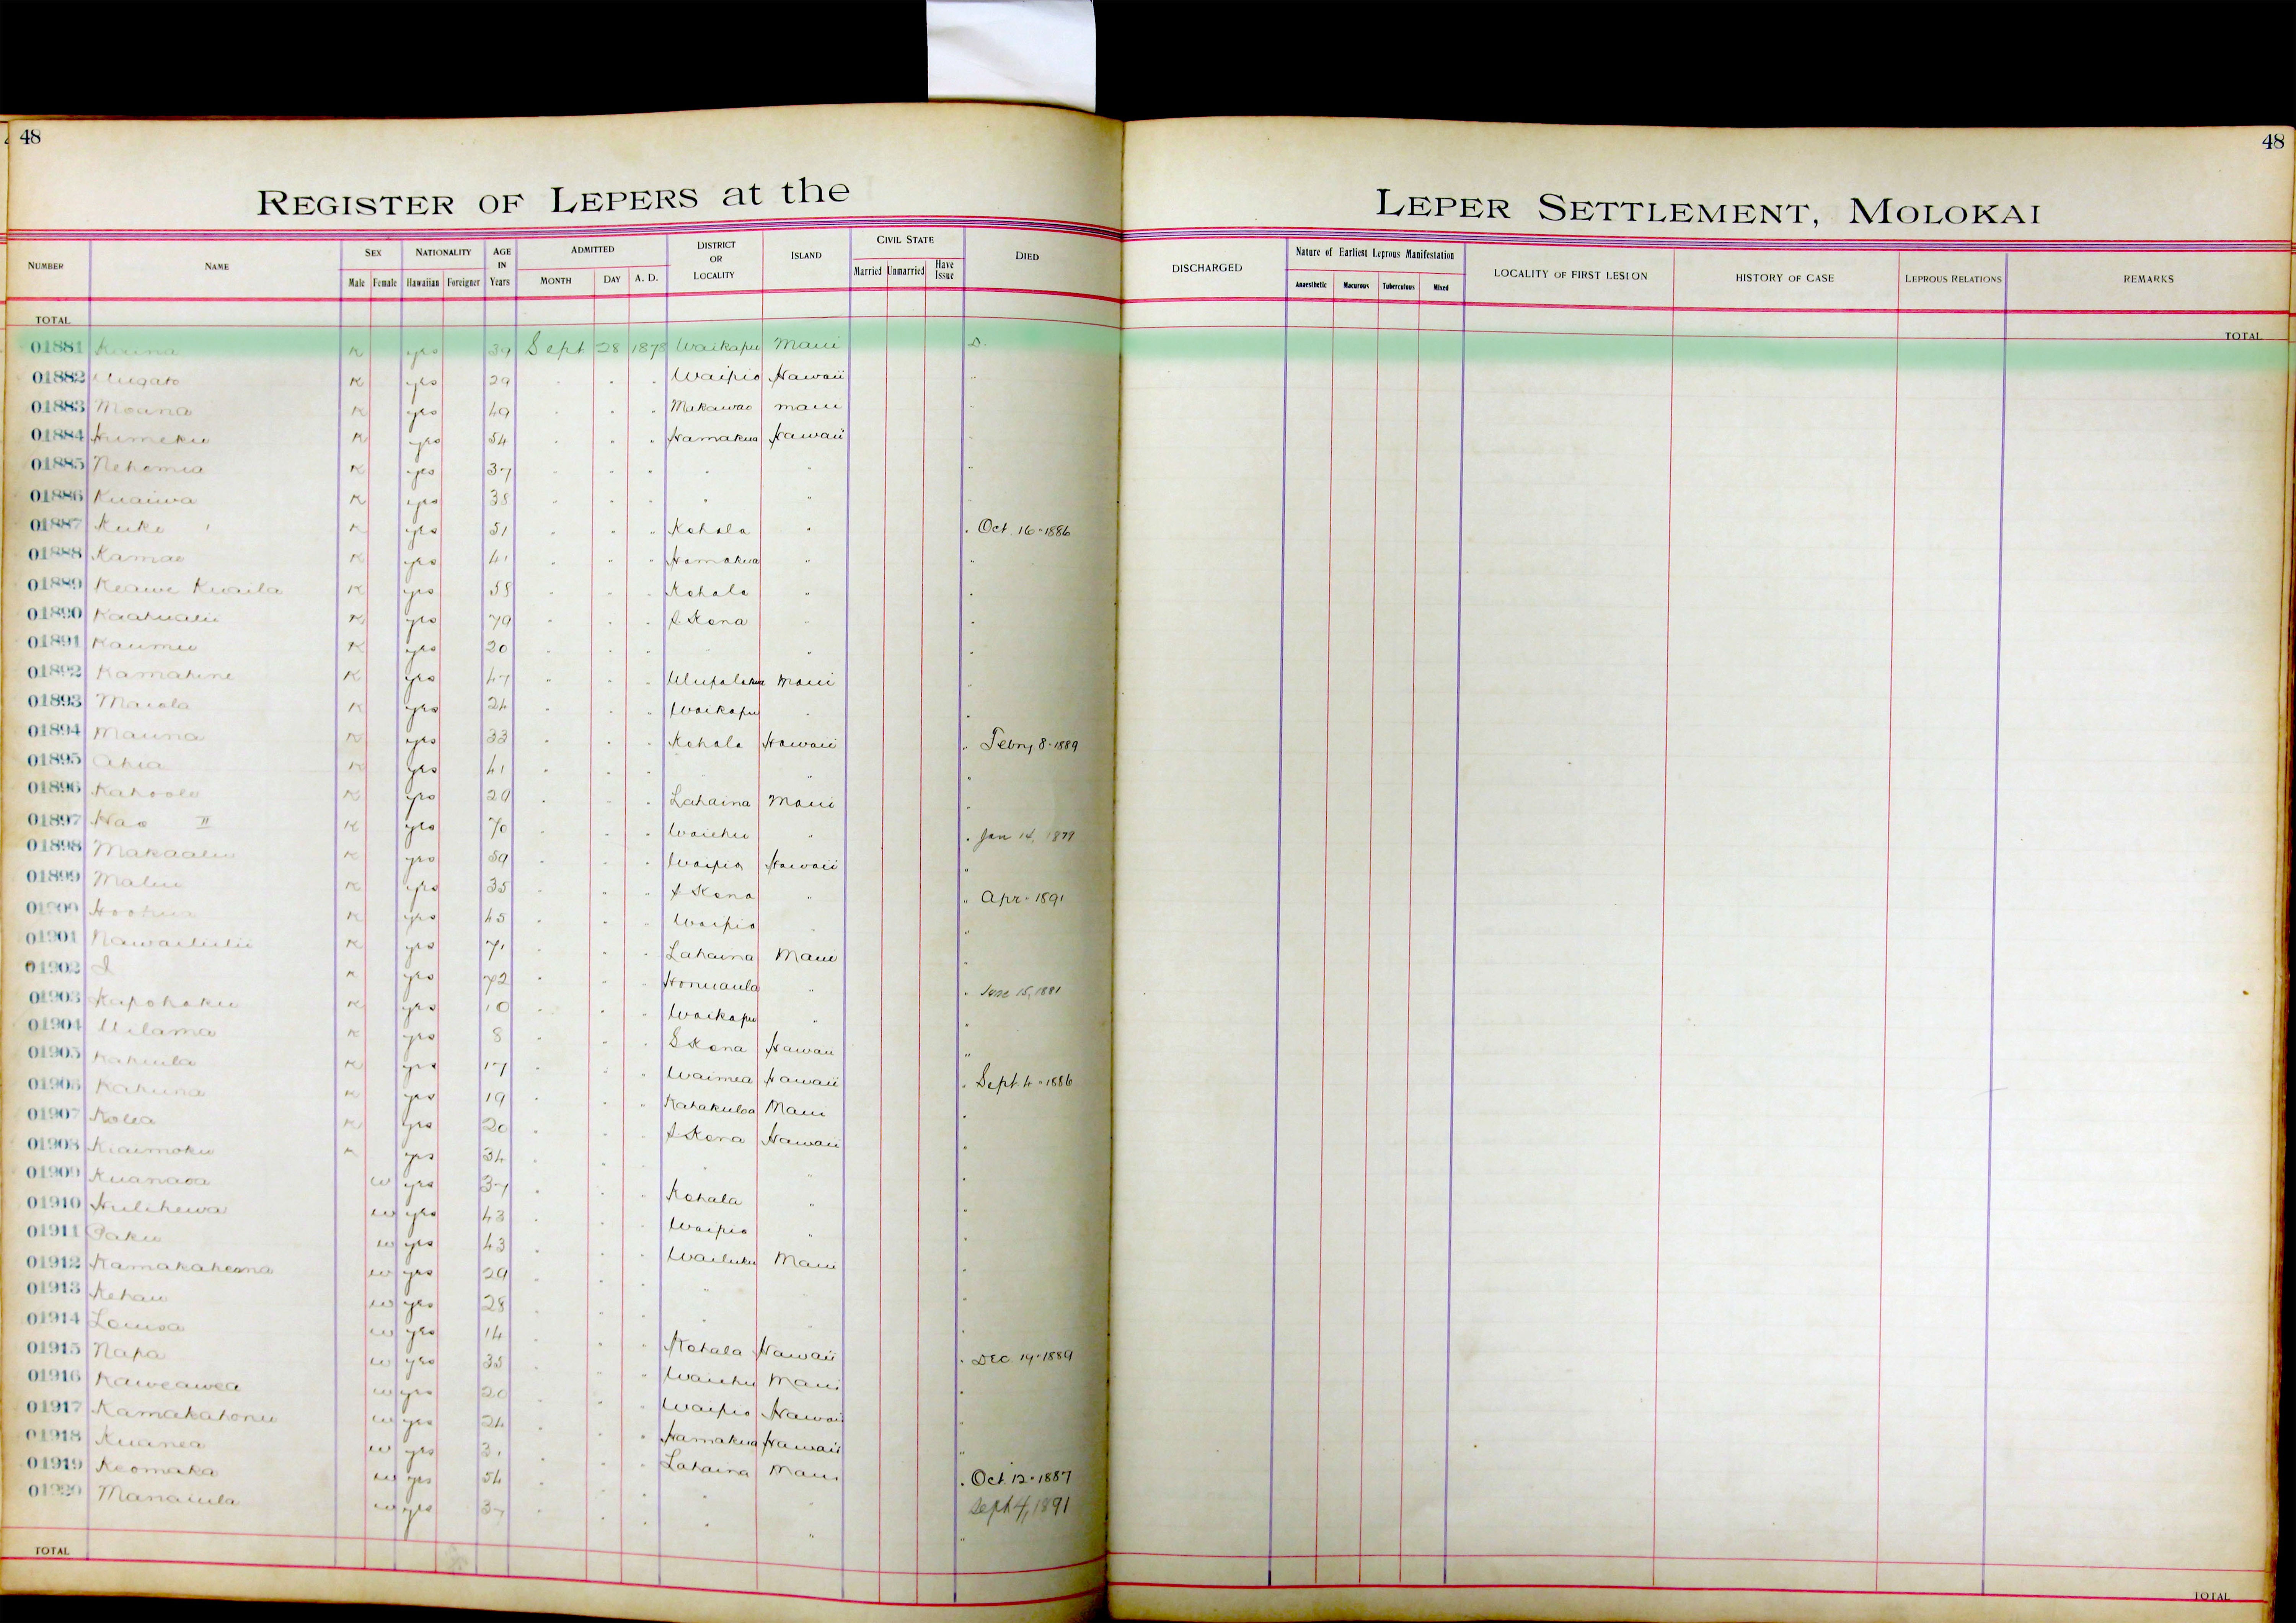 48
48
REGISTER OF LEPERS at the LEPER SETTLEMENT, MOLOKAI
NUMBER NAME SEX NATIONALITY AGE IN Years ADMITTED DISTRICT OR LOCALITY ISLAND CIVIL STATE DIED DISCHARGED Nature of Earliest Leprous Manifestation LOCALITY OF FIRST LESION HISTORY OF CASE LEPROUS RELATIONS REMARKS
Male Female Hawaiian Foreigner MONTH DAY A. D. Married Unmarried Have Issue Anaesthetic Macurous Tuberculous Mixed
TOTAL TOTAL
01881 K yes 39 Sept 28 1878 Waikapu Maui D.
01882 K yes 29 " " " Waipio Hawaii "
01883 Moana K yes 49 " " " Makawao Maui "
01884 Humeku K yes 54 " " " Hamakua Hawaii "
01885 Nehemia K yes 37 " " " " " "
01886 Kuaiwa K yes 38 " " " " " "
01887 Kuke K yes 51 " " " Kohala " " Oct. 16-1886
01888 Kamae K yes 41 " " " Hamakua " "
01889 Keawe Kuaila K yes 58 " " " Kohala " "
01890 Kaahualii K yes 79 " " " S Kona " "
01891 Kaumu K yes 20 " " " " " "
01892 Kamahine K yes 47 " " " Ulupalakua Maui "
01893 Maiola K yes 24 " " " Waikapu " "
01894 Mauna K yes 33 " " " Kohala Hawaii " Febry 8-1889
01895 Ahia K yes 41 " " " " " "
01896 Kahoole K yes 29 " " " Lahaina Maui "
01897 Hao II K yes 70 " " " Waiehu " " Jan 14, 1879
01898 Makaalu K yes 59 " " " Waipio Hawaii "
01899 Malu K yes 35 " " " S Kona " " Apr. 1891
01900 Hoohua K yes 45 " " " Waipio " "
01901 Nawailiilii K yes 71 " " " Lahaina Maui "
01902 I K yes 72 " " " Honuaula " " June 15, 1881
01903 Kapohaku K yes 10 " " " Waikapu " "
01904 Wilama K yes 8 " " " S Kona Hawaii "
01905 Kahiula K yes 17 " " " Waimea Hawaii " Sept. 4-1886
01906 Kahuna K yes 19 " " " Kahakuloa Maui "
01907 Kolea K yes 20 " " " S Kona Hawaii "
01908 Kiaimoku K yes 34 " " " " " "
01909 Kuanaoa w yes 37 " " " Kohala " "
01910 Hulihewa w yes 43 " " " Waipio " "
01911 Paku w yes 43 " " " Wailuku Maui "
01912 Kamakaheana w yes 29 " " " " "
01913 Kehau w yes 28 " " " " " "
01914 Louisa w yes 14 " " " Kohala Hawaii " Dec. 19-1889
01915 Napa w yes 35 " " " Waiehu Maui "
01916 Kaweawea w yes 20 " " " Waipio Hawaii "
01917 Kamakahonu w yes 24 " " " Hamakua Hawaii "
01918 Kuanea w yes 31 " " " Lahaina Maui " Oct 12-1887
01919 Keomaka w yes 54 " " " " " Sept 4, 1891
01920 Manaiula w yes 37 " " " " " "
TOTAL TOTAL